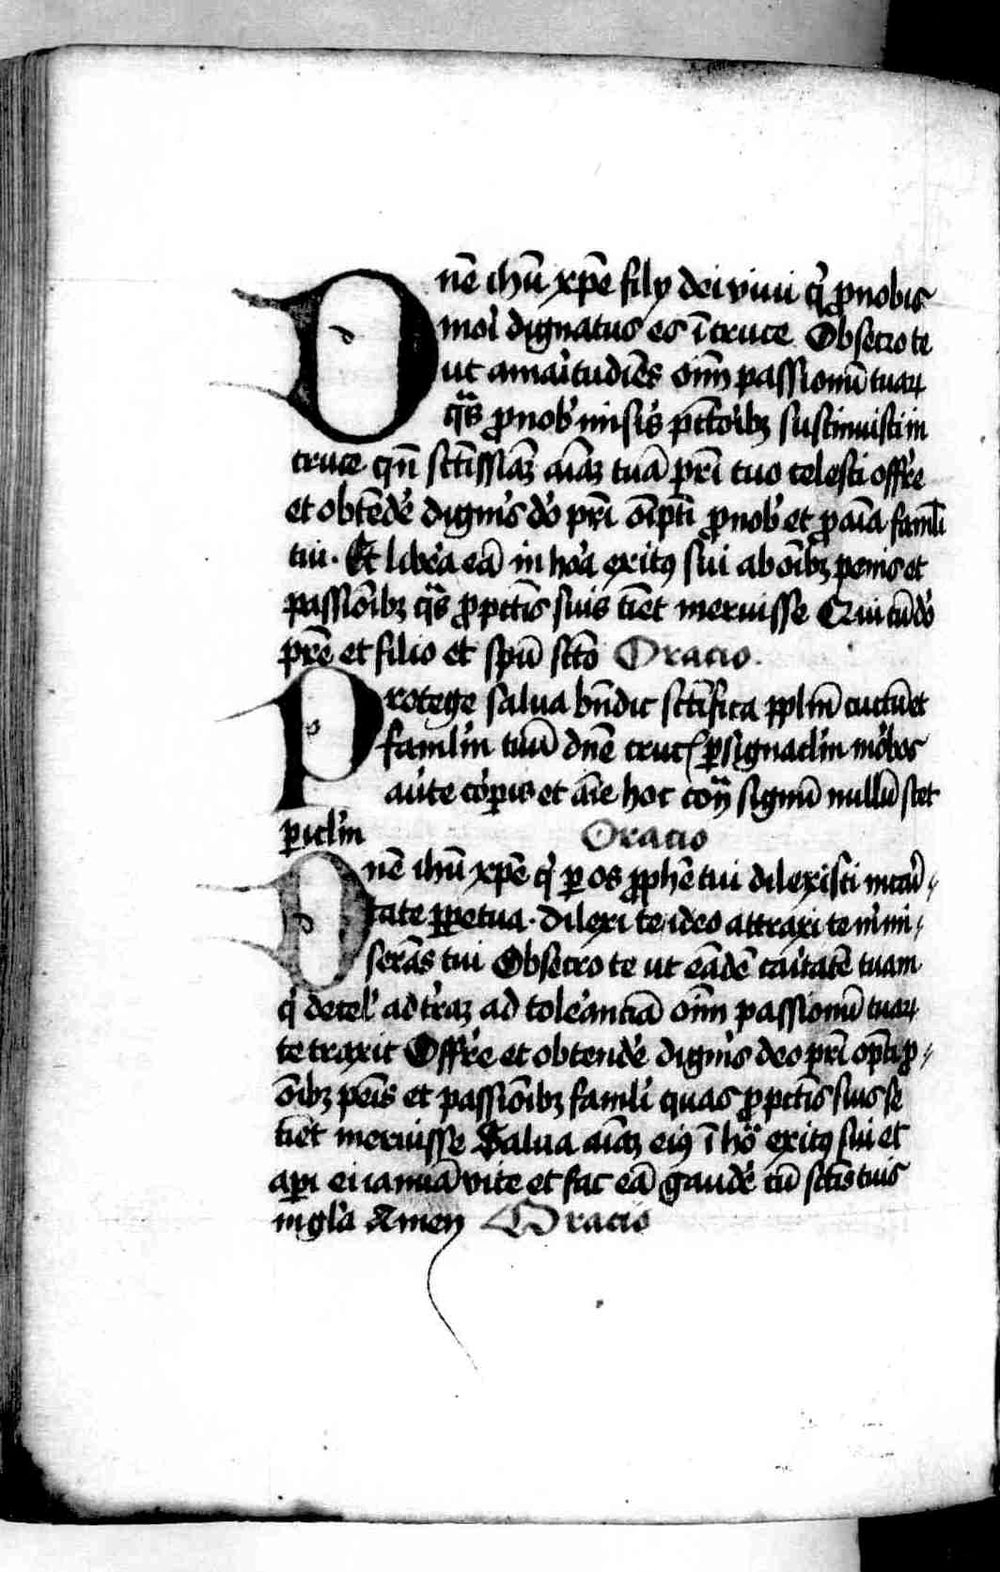 Dnē ihū xpē fily dei viui q' pnobis
mori dignatus es ī cruce Obsecro te
ut amaritudiēs oīm passionū tuaꝝ
qͣs pnob' mis̄is pctoībꝫ sustinuisti in
cruce qn̄ sctissīaꝫ aīaꝫ tuā pri tuo celesti offre
et obtēdē dignis dō pri oīpti pnob' et p aīa famli
tui. Et libera eā in hora exitꝯ sui ab oībꝫ penis et
passiōibꝫ qͣs p pctīs suis tīet meruisse Qui cū dō
prē et filio et spū sctō Oracio.
Protege salua bn̄dic sctīfica pplm̄ cūctū et
famlm tuū dnē cruc[is] p signaclm morbos
aute corpis et aīe hoc cont[ra] signū nullū stet
piclm Oracio
Dnē ihū xpē q' p os pphē tui dilexisti in cari
tate ppetua. dilexi te ideo attraxi te ni mi
serās tui Obsecro te ut eādē caritatē tuam
q' de cel' ad t'raꝫ ad tolerantiā oīm passionū tuaꝝ
te traxit Offre et obtendē dignis deo pri opti p
oībꝫ penis et passiōibꝫ famli quas p pctīs suis se
tīet meruisse Salua aīaꝫ eiꝯ ī ho' exitꝯ sui et
api ei ianuā vite et fac eā gaudē cū sctīs tuis
in gl'a Amen Oracio